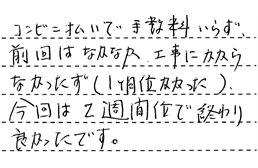 コンビニ払いで手数料いらず、
前回はなかなか工事にかから
なかったず(1ヶ月位かかった)、
今回は2週間位で終わり
良かったです。